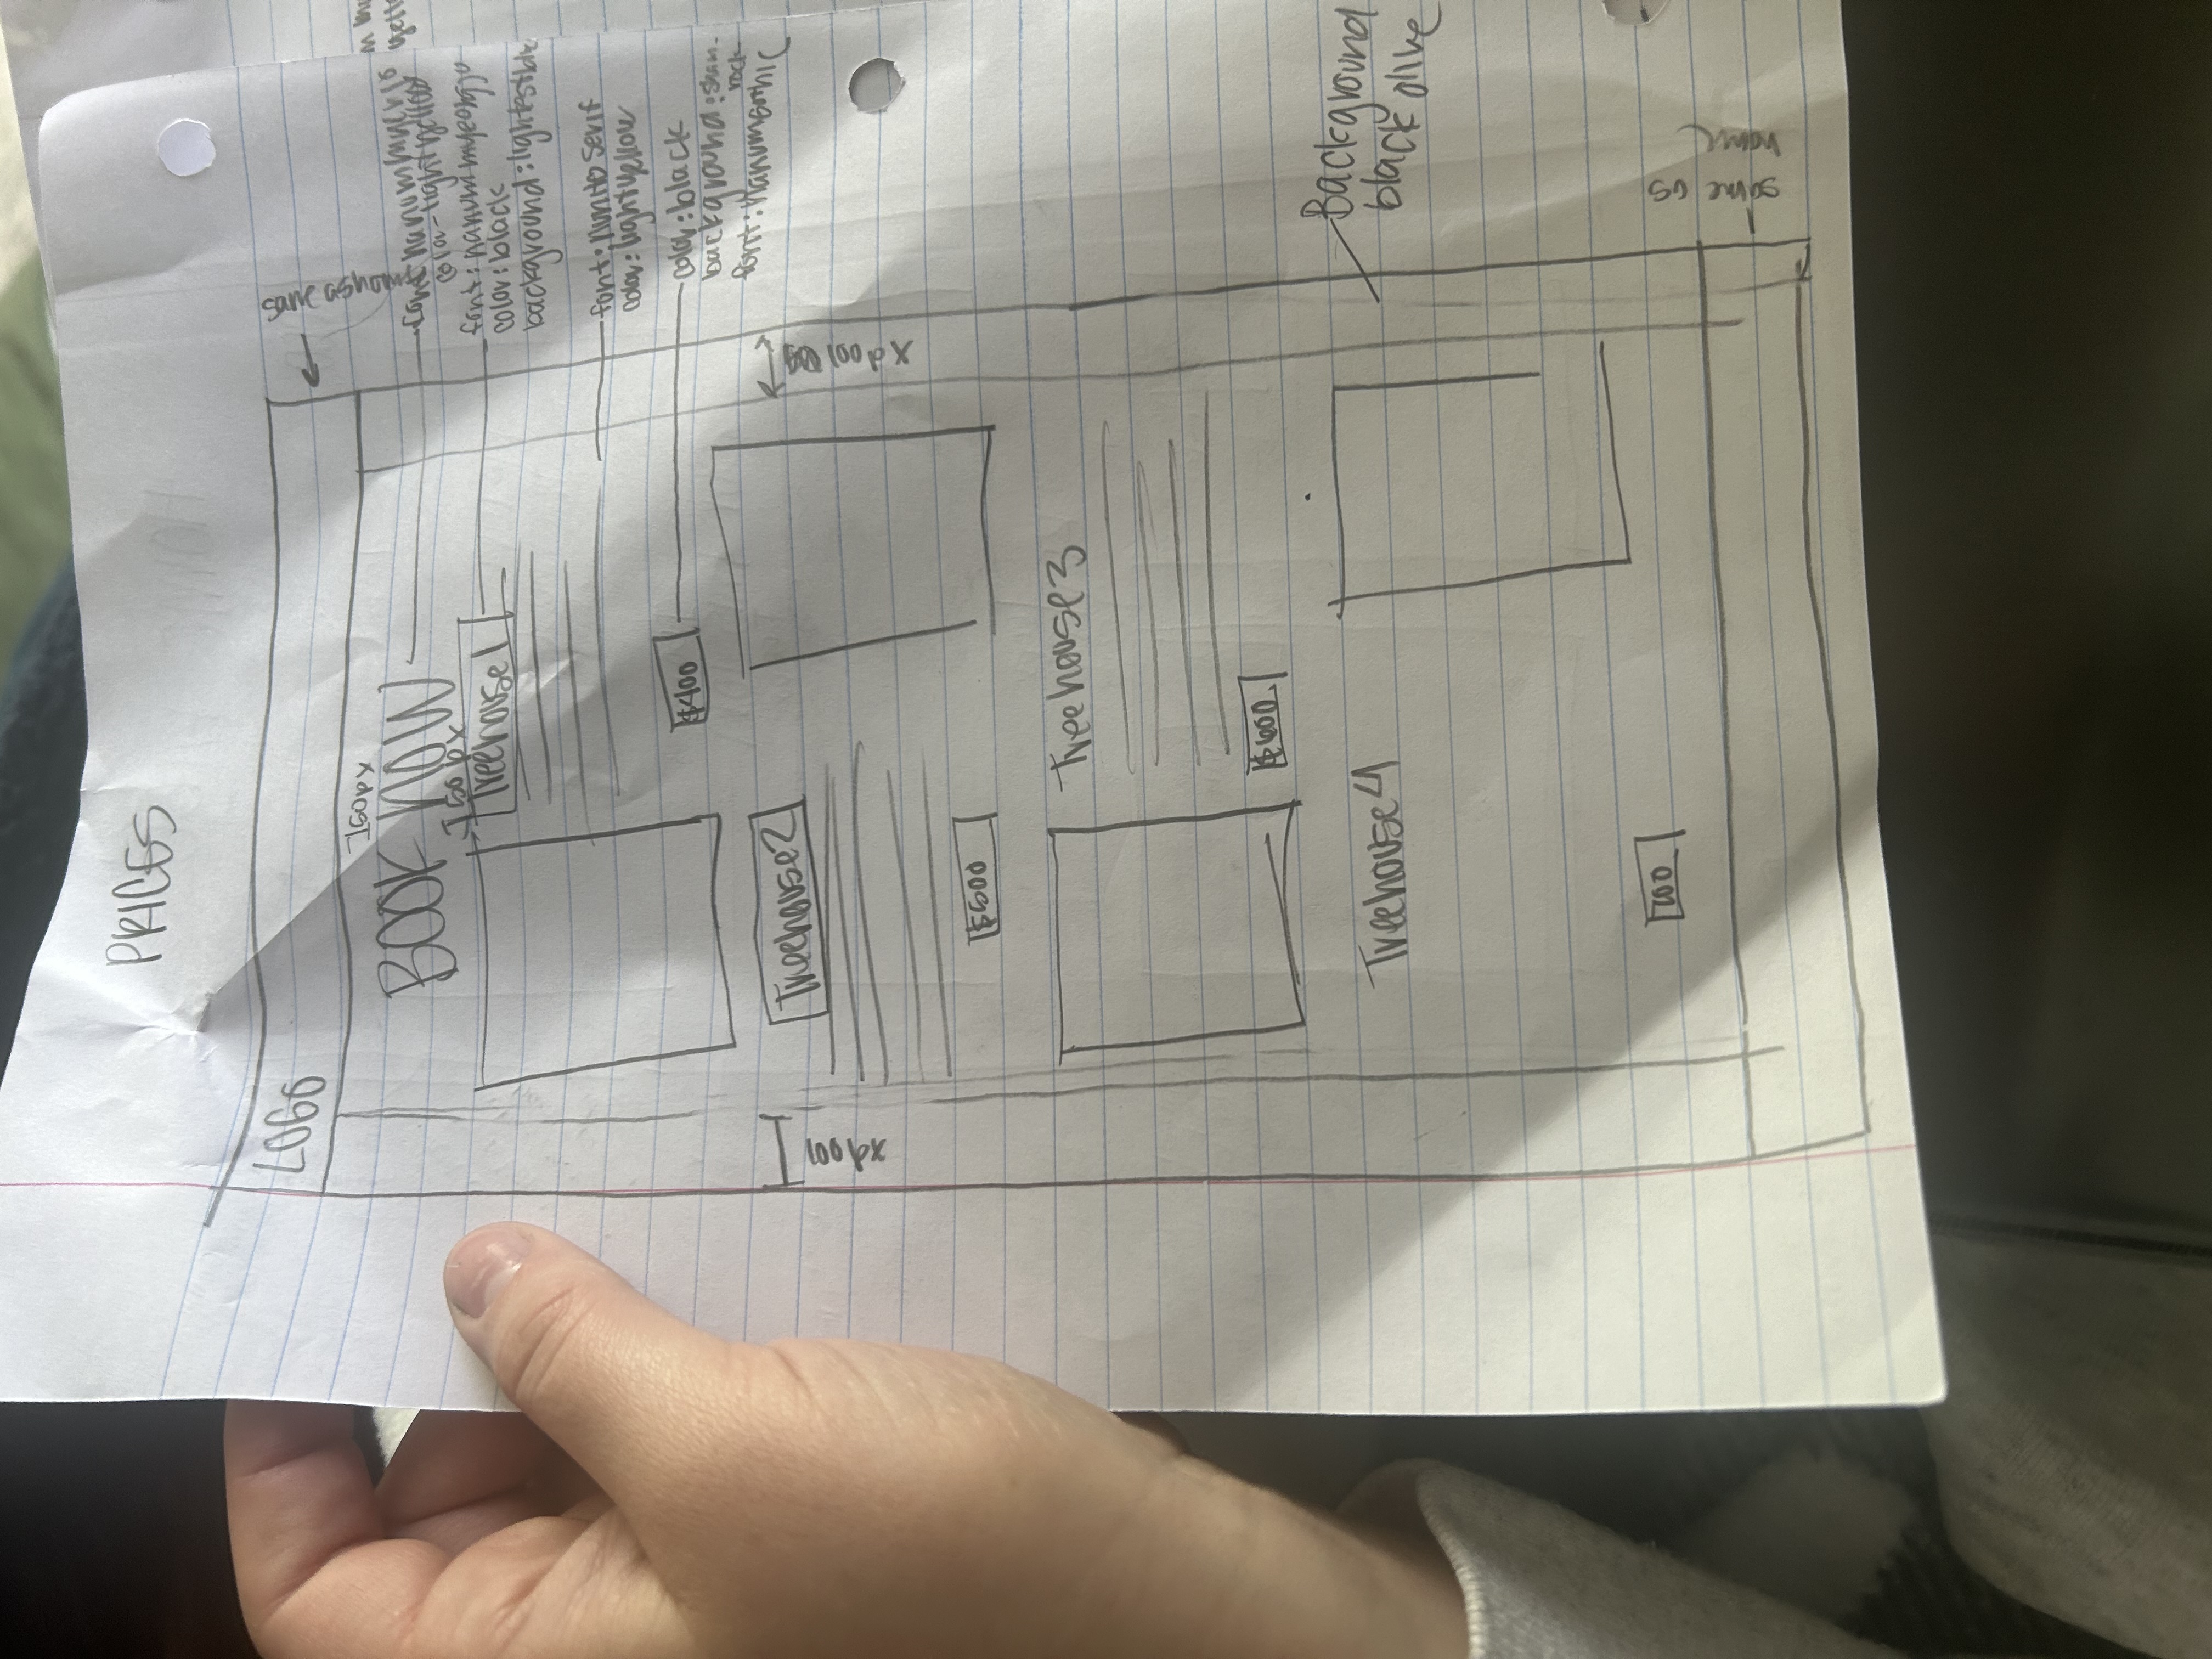 PRICES
LOGO
same as home
50px
BOOK NOW
font: nanum myeongjo
color-light yellow
50px
Treehouse1
font: nanum myeongjo
color: black
background: lightest blue
font: Nunito Serif
color: lightyellow
$400
color: black
background: sham-
rock
font: NanumGothic
Treehouse2
100px
100px
$500
Treehouse3
$600
Background
black olive
Treehouse4
same as
home